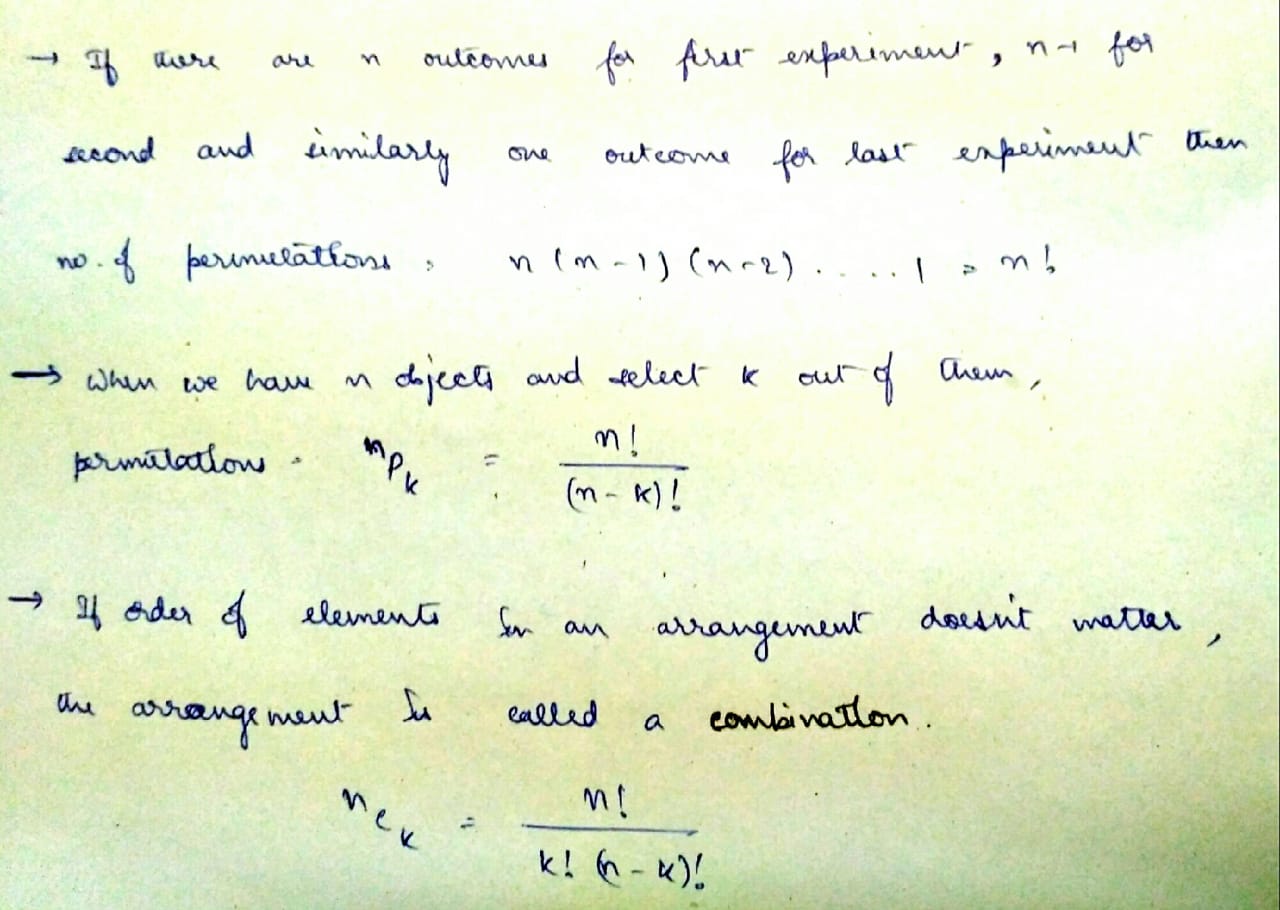 → If there are n outcomes for first experiment, n-1 for
second and similarly one outcome for last experiment then
no. of permutations = n (n-1) (n-2) ..... 1 = n!
→ When we have n objects and select k out of them,
permutations = ⁿPₖ = n! / (n-k)!
→ If order of elements in an arrangement doesn't matter,
the arrangement is called a combination.
ⁿCₖ = n! / k! (n-k)!